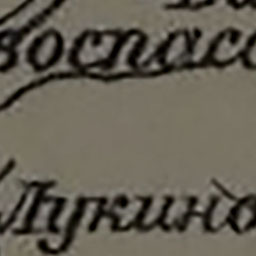 воспасс
Лукино